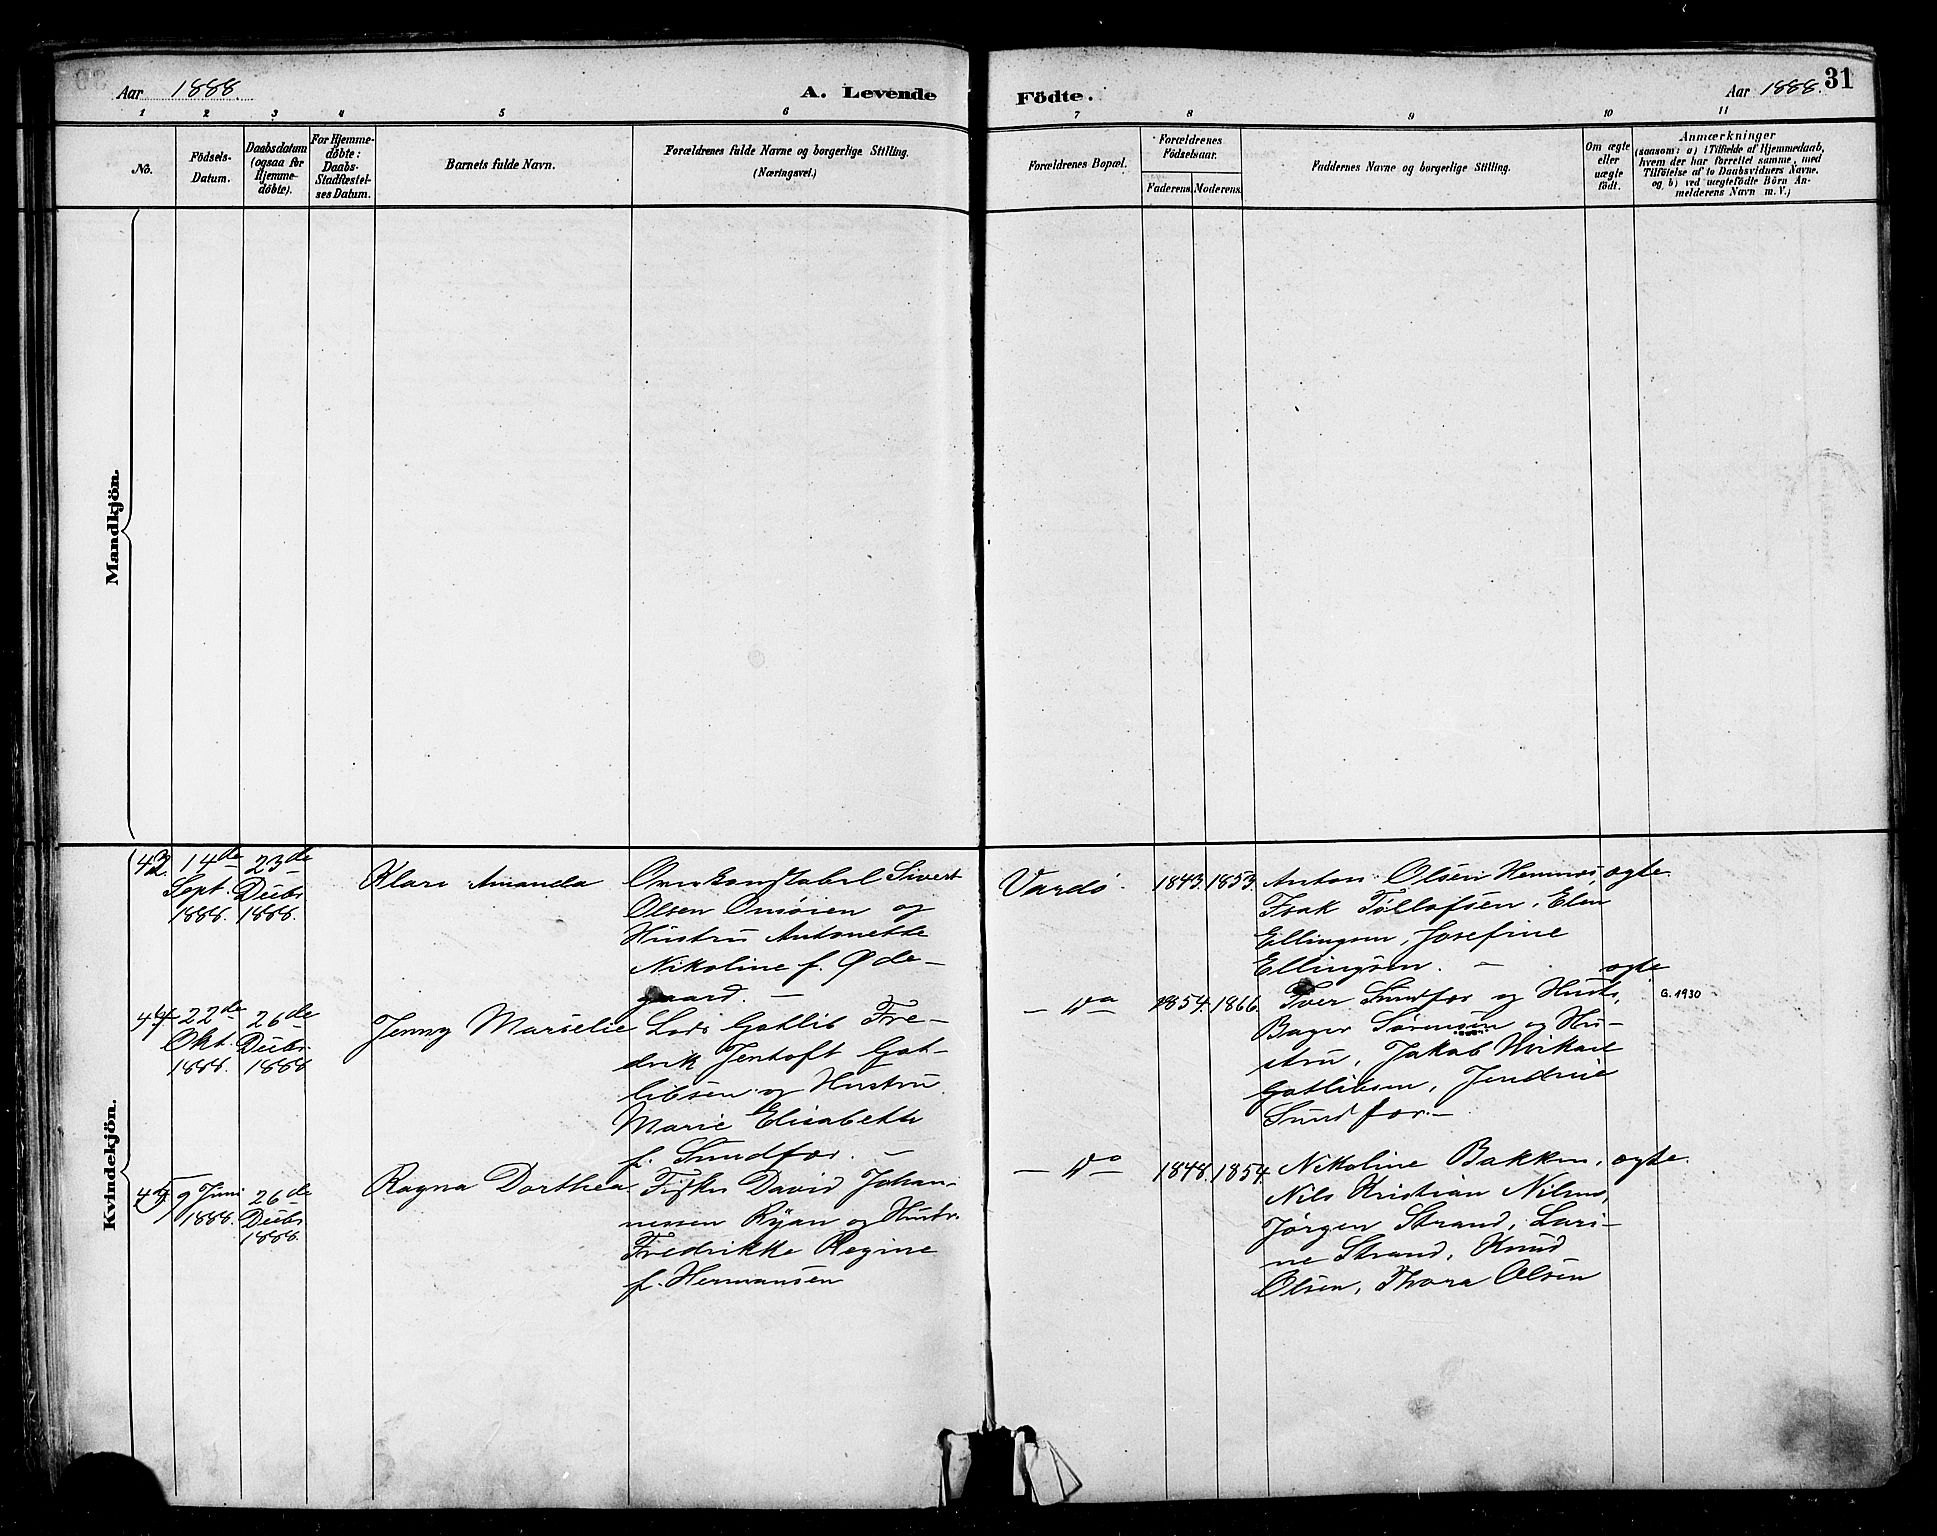 Aar 1888.
A. Levende
Födte.
Aar 1888.
31
1 2 3 4 5 6 7 8 9 10 11
No.
Födsels-
Datum.
Daabsdatum
(ogsaa for
Hjemme-
döbte).
For Hjemme-
döbte:
Daabs-
Stadfæstel-
ses Datum.
Barnets fulde Navn.
Forældrenes fulde Navne og borgerlige Stilling.
(Næringsvei.)
Forældrenes Bopæl.
Forældrenes
Födselsaar.
Faderens. Moderens.
Faddernes Navne og borgerlige Stilling.
Om ægte
eller
uægte
födt.
Anmærkninger
(saasom: a) i Tilfælde af Hjemmedaab,
hvem der har forrettet samme, med
Tilföielse af to Daabsvidners Navne.
og b) ved uægtefödte Börn An-
melderens Navn m. V.)
Mandkjön.
Kvindekjön.
43.
14de
Sept.
1888.
23de
Decbr
1888.
Klara Amanda
Sivert
Olsen og
Hustru Antonette
Nikoline f. Øde-
gaard. —
Vardö.
1843. 1853.
Anton Olsen
Isak Tollofsen, Elen
Ellingsen, Josefine
Ellingsen. —
ægte.
44
22de
Okt.
1888.
26de
Decbr.
1888
Jenny Marselie
Gotlib Fre-
drik Jentoft Got-
libsen og Hustru
Marie Elisabeth
f. Sundfær. —
— Do —
1854. 1866.
Iver Sundfær og Hust.,
Bager Sørensen og Hu-
stru, Jakob Mikael
Gotlibsen, Jendrie
Sundfær. —
ægte
G. 1930
45
9 Juni
1888.
26de
Decbr
1888.
Ragna Dorthea
Fisker David Johan-
nessen Ryan og Hustr.
Fredrikke Regine
f. Hermansen
— Do —
1848. 1854
Nikoline Bakken,
Nils Kristian Nilsen,
Jørgen Strand, Lari-
ne Strand, Knud
Olsen, Thora Olsen
ægte.